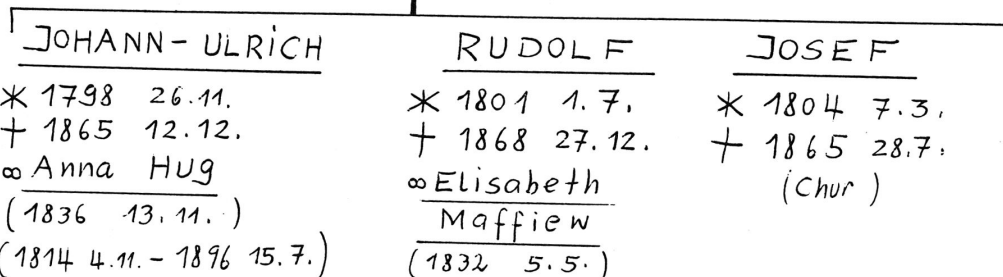 JOHANN-ULRICH
* 1798 26.11.
+ 1865 12.12.
∞ Anna Hug
(1836 13.11.)
(1814 4.11. - 1896 15.7.)
RUDOLF
* 1801 1.7.
+ 1868 27.12.
∞ Elisabeth
Maffiew
(1832 5.5.)
JOSEF
* 1804 7.3.
+ 1865 28.7.
(Chur)